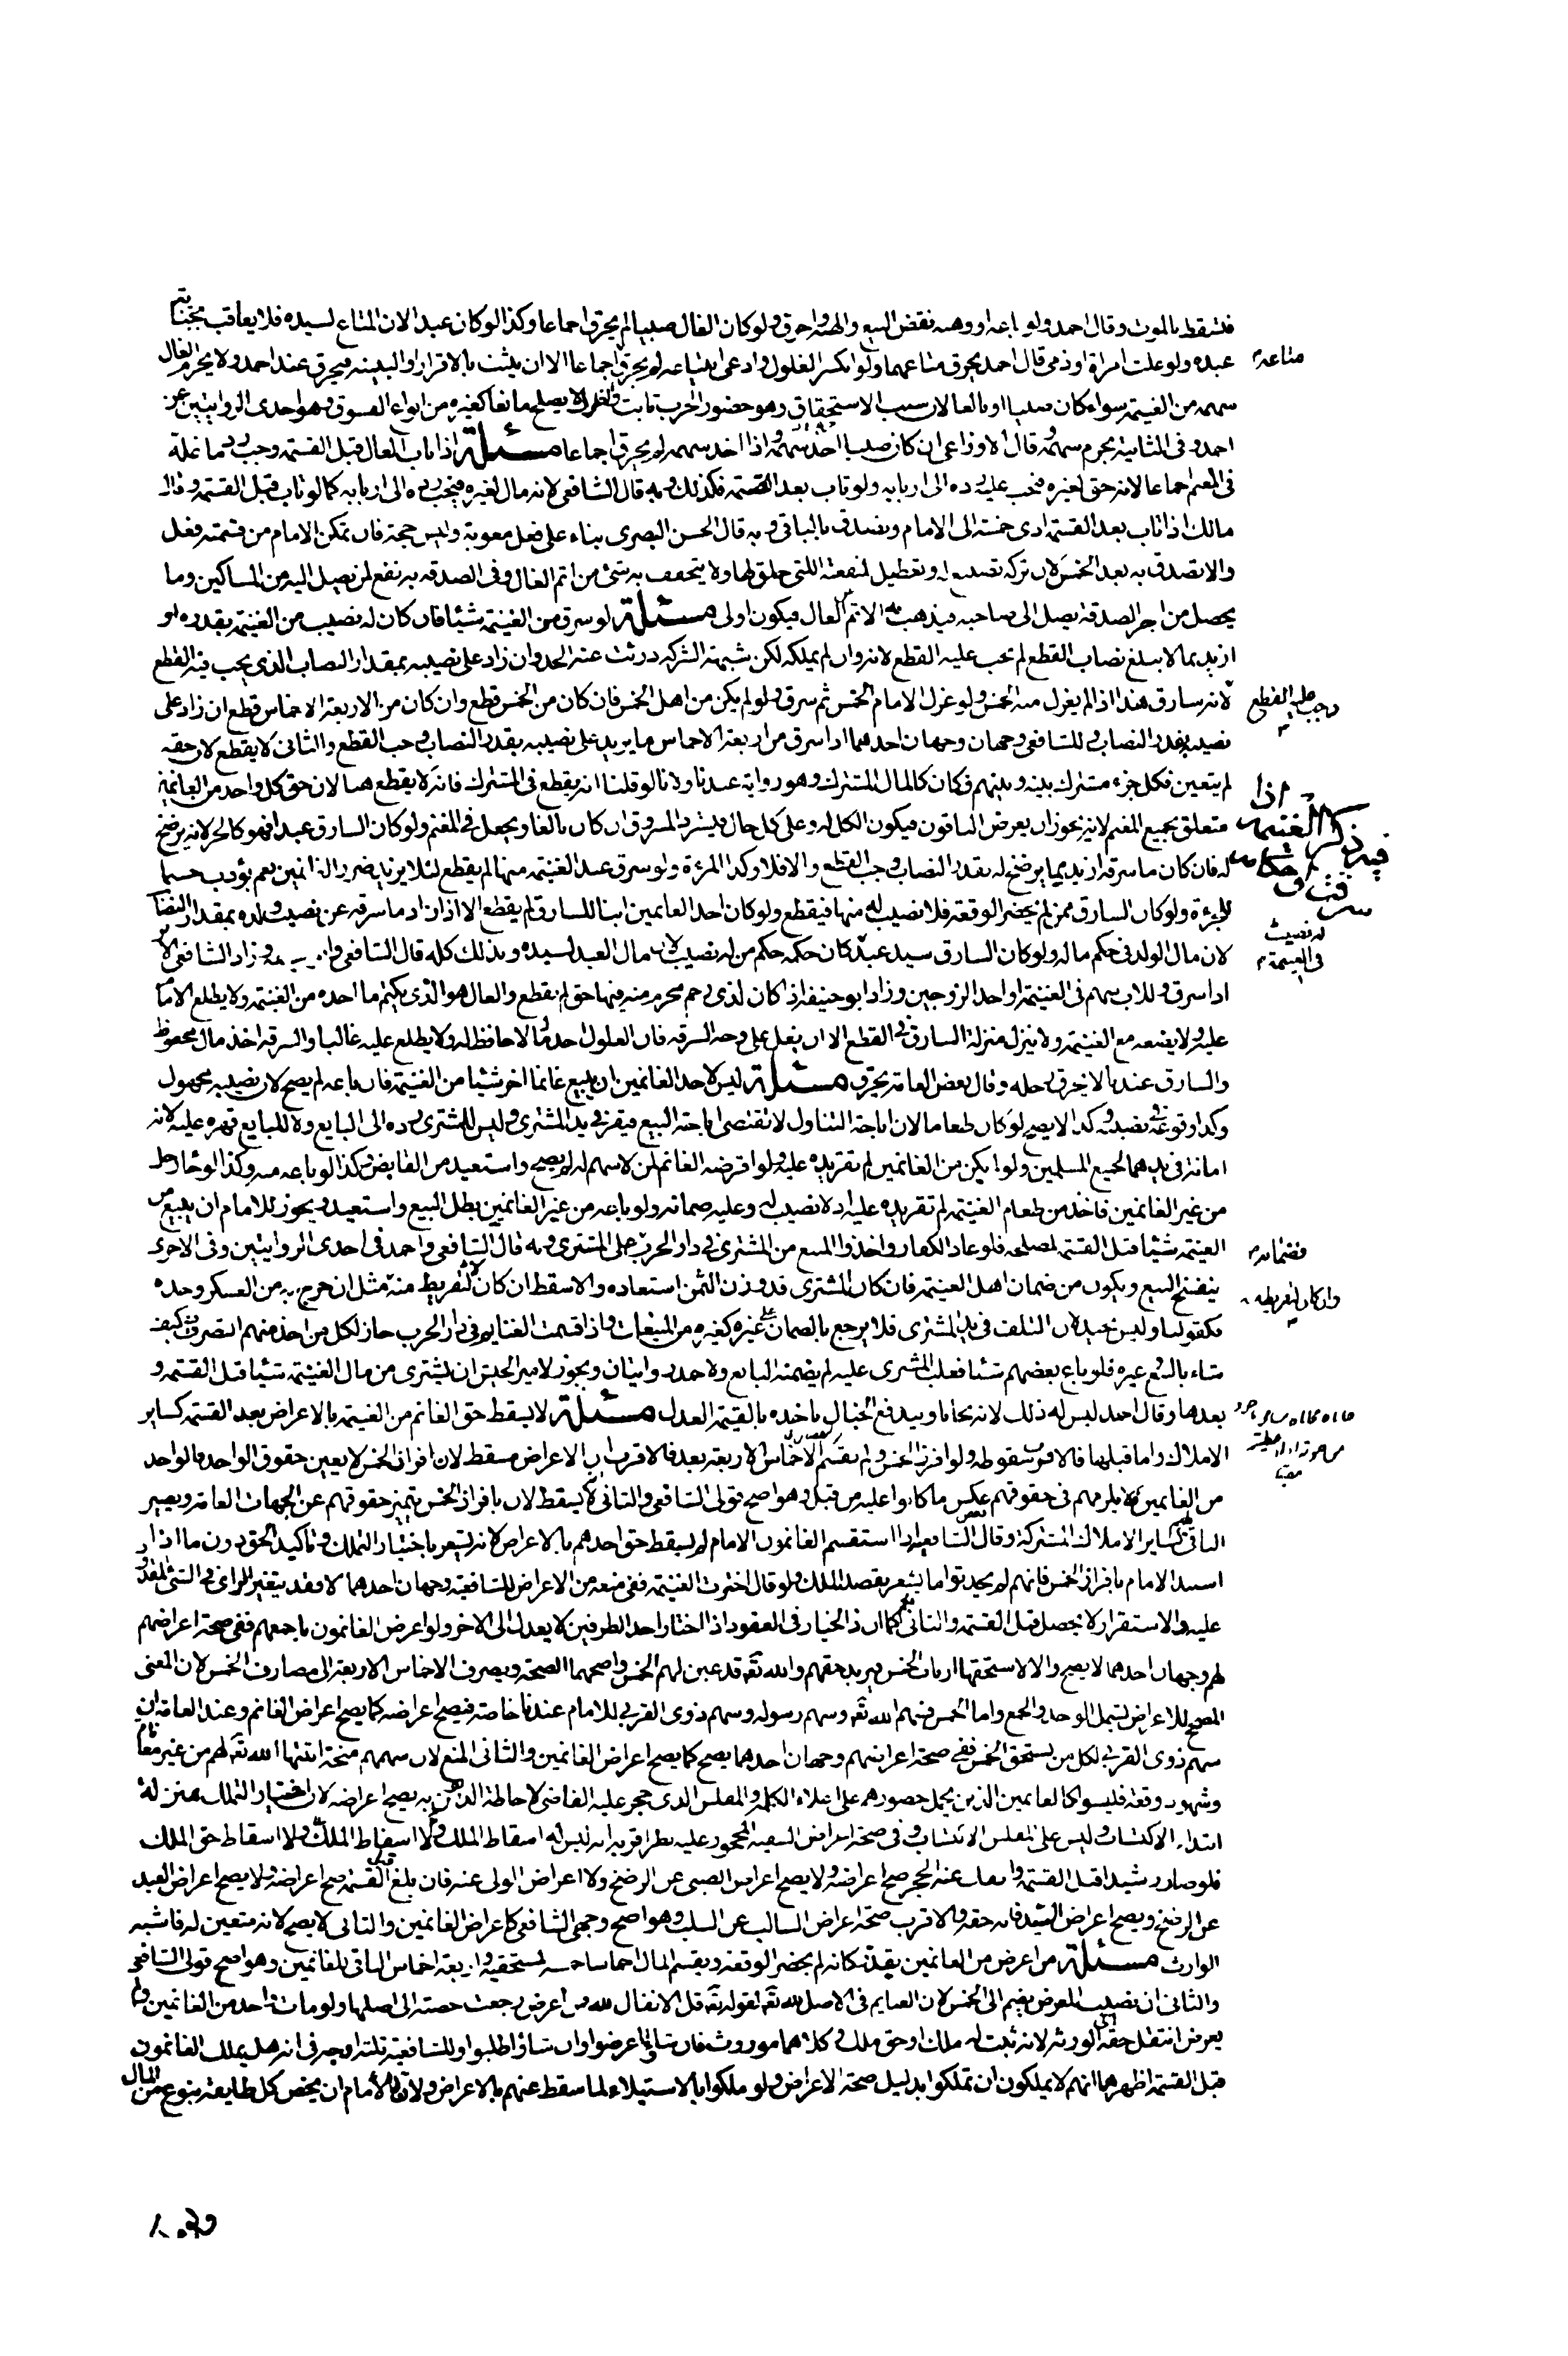 فتسقط بالموت وقال احمد ولو باعه او وهبه نقض البيع والهبة واحرق ولو كان الغال صبيا لم يحرق اجماعا وكذا لو كان عبدا لان المتاع لسيده فلا يعاقب بجناية
عبده ولو غلت امراة او ذمي قال احمد يحرق متاعهما ولو انكر الغلول وادعى ابتياعه لم يحرق اجماعا الا ان يثبت بالاقرار او البينه فيحرق عند احمد ولا يحرم الغال
سهمه من الغنيمة سواء كان صبيا او بالغا لان سبب الاستحقاق وهو حضور الحرب ثابت والغلول لا يصلح مانعا كغيره من انواع الفسوق وهو احدى الروايتين عن
احمد وفي الثانية يحرم سهمه وقال الاوزاعي ان كان صبيا احد سهمه واذا اخذ سهمه لم يحرق اجماعا مسئلة اذا تاب الغال قبل القسمة وجب رد ما غلة
في المغنم اجماعا لانه حق لغيره فيجب عليه رده الى اربابه ولو تاب بعد القسمة فكذلك وبه قال الشافعي لانه مال لغيره فيجب رده الى اربابه كما لو تاب قبل القسمة وقال
مالك اذا تاب بعد القسمة ادى خمسه الى الامام وتصدق بالباقي وبه قال الحسن البصري بناء على فعل معوية وليس حجة فان تمكن الامام من قسمته فعل
والا تصدق به بعد الخمس لان تركه تضييع له وتعطيل لمنفعته اللتي خلق لها ولا يتخفف به شئ من اثم الغال وفي الصدقه به نفع لمن يصل اليه من المساكين وما
يحصل من اجر الصدقة يصل الى صاحبه فيذهب به الاثم عن الغال فيكون اولى مسئلة لو سرق من الغنيمة شيئا فان كان له نصيب من الغنيمة بقدره او
ازيد بما لا يبلغ نصاب القطع لم تجب عليه القطع لانه وان لم يملكه لكن شبهة الشركه درئت عنه الحد وان زاد على نصيبه بمقدار النصاب الذي يجب فيه القطع
لانه سارق هذا اذا لم يعزل منه الخمس ولو عزل الامام الخمس ثم سرق ولو لم يكن من اهل الخمس فان كان من الخمس قطع وان كان من الاربعة الاخماس قطع ان زاد على
نصيبه بقدر النصاب وللشافعي وجهان وجهان احدهما اذا سرق من اربعة الاخماس ما يزيد على نصيبه بقدر النصاب وجب القطع والثاني لا يقطع لان حقه
لم يتعين فكل جزء مشترك بينه وبينهم فكان كالمال المشترك وهو رواية عندنا ولانا لو قلنا انه يقطع في المشترك فانه لا يقطع هنا لان حق كل واحد من الغانمين
متعلق بجميع المغنم لانه يجوز ان يعرض الباقون فيكون الكل له وعلى كل حال فيسترد المسروق ان كان بالغا ويجعل في المغنم ولو كان السارق عبدا فهو كالحر لانه يرضخ
له فان كان ما سرقه ازيد مما يرضخ له بقدر النصاب وجب القطع والا فلا وكذا المرءة ولو سرق عبد الغنيمة منها لم يقطع لئلا يزيد ضرر الغانمين نعم يؤدب حسما
للجرءة ولو كان السارق ممن لم يحضر الوقعة فلا نصيب له منها فيقطع ولو كان احد الغانمين ابنا للسارق لم يقطع الا اذا زاد ما سرقه عن نصيب ولده بمقدار النصاب
لان مال الولد في حكم ماله ولو كان السارق سيد عبد كان حكمه حكم من له نصيب لان مال العبد لسيده وبذلك كله قال الشافعي وزاد الشافعي
اذا سرق وللاب سهم في الغنيمة او احد الزوجين وزاد ابو حنيفة اذا كان لذي رحم محرم منه فيها حق لم يقطع والغال هو الذي يكتم ما اخذه من الغنيمه ولا يطلع الامام
عليه ولا يضعه مع الغنيمه ولا ينزل منزلة السارق في القطع الا ان يغل على وجه السرقه فان الغلول اخذ ما لا حافظ له ولا يطلع عليه غالبا والسرقة اخذ مال محفوظ
والسارق عندنا لا يحرق رحله وقال بعض العامة يحرق مسئلة ليس لاحد الغانمين ان يبيع غانما اخر شيئا من الغنيمة فان باعه لم يصح لان نصيبه مجهول
وكذا وقوعه في نصيبه وكذا لا يصح لو كان طعاما لان اباحة التناول لا تقتضي اباحة البيع فيقر في يد المشتري وليس للمشتري رده الى البايع ولا للبايع قهره عليه لانه
امانة في يدهما لجميع المسلمين ولو لم يكن من الغانمين لم تقر يده عليه ولو اقرضه الغانم لمن لا سهم له لم يصح واستعيد من القابض وكذا لو باعه منه وكذا لو جاء رجل
من غير الغانمين فاخذ من طعام الغنيمة لم تقر يده عليه اذ لا نصيب له وعليه ضمانه ولو باعه من غير الغانمين بطل البيع واستعيد ويجوز للامام ان يبيع من
الغنيمة شيئا قبل القسمة لمصلحه فلو عاد الكفار واخذوا المبيع من المشتري في دار الحرب على المشتري وبه قال الشافعي واحمد في احدى الروايتين وفي الاخرى
ينفسخ البيع ويكون من ضمان اهل الغنيمة فان كان المشتري قد وزن الثمن استعاده والا سقط ان كان لا لتفريط منه مثل ان خرج به من العسكر وحده
فكقولنا وليس بجيد لان التلف في يد المشتري فلا يرجع بالضمان على غيره كغيره من المبيعات واذا قسمت الغنايم في دار الحرب جاز لكل من اخذ منهم التصرف كيف
شاء بالبيع غيره فلو باع بعضهم شيئا فغلب المشتري عليه لم يضمنه البايع ولاحمد روايتان ويجوز لامير الجيش ان يشتري من مال الغنيمة شيئا قبل القسمة و
بعدها وقال احمد ليس له ذلك لانه يحابا ويندفع الخيال باخذه بالقيمة العدل مسئلة لا يسقط حق الغانم من الغنيمة بالاعراض بعد القسمة كساير
الاملاك واما قبلها فالاقرب سقوطه ولو افرز الخمس ولم يقسم الاخماس الاربعة بعد فالاقرب ان الاعراض مسقط لان افراز الخمس لا يعين حقوق الواحد فالواحد
من الغانمين فلا يلزمهم في حقوقهم عكس ما كانوا عليه من قبل وهو اصح قولي الشافعي والثاني لا يسقط لان بافراز الخمس يتميز حقوقهم عن الجهات العامة ويصير
الباقي لهم كساير الاملاك المشتركة وقال بعض الشافعية اذا استقسم الغانمون الامام لم يسقط حق احدهم بالاعراض لانه يشعر باختيار التملك وتاكيد الحق دون ما اذا
استبد الامام بافراز الخمس فانهم لم يحدثوا ما يشعر بقصد الملك ولو قال اخترت الغنيمة ففي منعه من الاعراض للشافعية وجهان احدهما لا فقد يتغير الراي في الشئ المقدور
عليه والاستقرار لا يحصل قبل القسمة والثاني نعم كما ان ذا الخيار في العقود اذا اختار احد الطرفين لا يعدل الى الاخر ولو اعرض الغانمون باجمعهم ففي صحة اعراضهم
لهم وجهان احدهما لا يصح والا لاستحقها ارباب الخمس فيزيد حقهم والله تعالى قد عين لهم الخمس واصحهما الصحة ويصرف الاخماس الاربعة الى مصارف الخمس لان المعنى
المصحح للاعراض يشمل الوحد والجمع واما الخمس فسهم لله تعالى وسهم رسوله وسهم ذوي القربى للامام عندنا خاصة فيصح اعراضه كما يصح اعراض الغانم وعند العامة ان
سهم ذوي القربى لكل من يستحق الخمس ففي صحة اعراضهم وجهان احدهما يصح كما يصح اعراض الغانمين والثاني المنع لان سهمهم منحة اثبتها الله تعالى لهم من غير معاناة
وشهود وقعة فليسوا كالغانمين الذين يحمل حضورهم على اعلاء الكلمة والمفلس الذي حجر عليه القاضي لاحاطة الديون به يصح اعراضه لان اختيار التملك بمنزلة
ابتداء الاكتساب وليس على المفلس الاكتساب وفي صحة اعراض السفيه المحجور عليه نظر اقربه انه ليس له اسقاط الملك ولا اسقاط حق الملك
فلو صار رشيدا قبل القسمة وانفك عنه الحجر صح اعراضه ولا يصح اعراض الصبي عن الرضخ ولا اعراض الولي عنه فان بلغ قبل القسمة صح اعراضه ولا يصح اعراض العبد
عن الرضخ ويصح اعراض السيد فانه حقه والاقرب صحة اعراض السالب عن السلب وهو اصح وجهي الشافعي كاعراض الغانمين والثاني لا يصح لانه متعين له فاشبه
الوارث مسئلة من اعرض من الغانمين يقدر كانه لم يحضر الوقعة ويقسم المال خماسا خمسه لمستحقيه واربعة اخماس الباقي للغانمين وهو اصح قولي الشافعي
والثاني ان نصيب المعرض يضم الى الخمس لان الغنايم في الاصل لله تعالى لقوله تعالى قل الانفال لله فمن اعرض رجعت حصته الى اصلها ولو مات واحد من الغانمين ولم
يعرض انتقل حقه الى الورثه لانه ثبت له ملك او حق ملك وكلاهما موروث فان شاؤا اعرضوا وان شاؤا طلبوا وللشافعية ثلثة اوجه في انه هل يملك الغانمون
قبل القسمة اظهرها انهم لا يملكون ان تملكوا بدليل صحة الاعراض ولو ملكوا بالاستيلاء لما سقط عنهم بالاعراض ولان للامام ان يخص كل طايفة بنوع من المال
متاعه
وجب عليه القطع
فيه ذكر الغنيمة اذا
سرقت واحكامه
له نصيب
في الغنيمة
فضمانه
وان كان لتفريطه